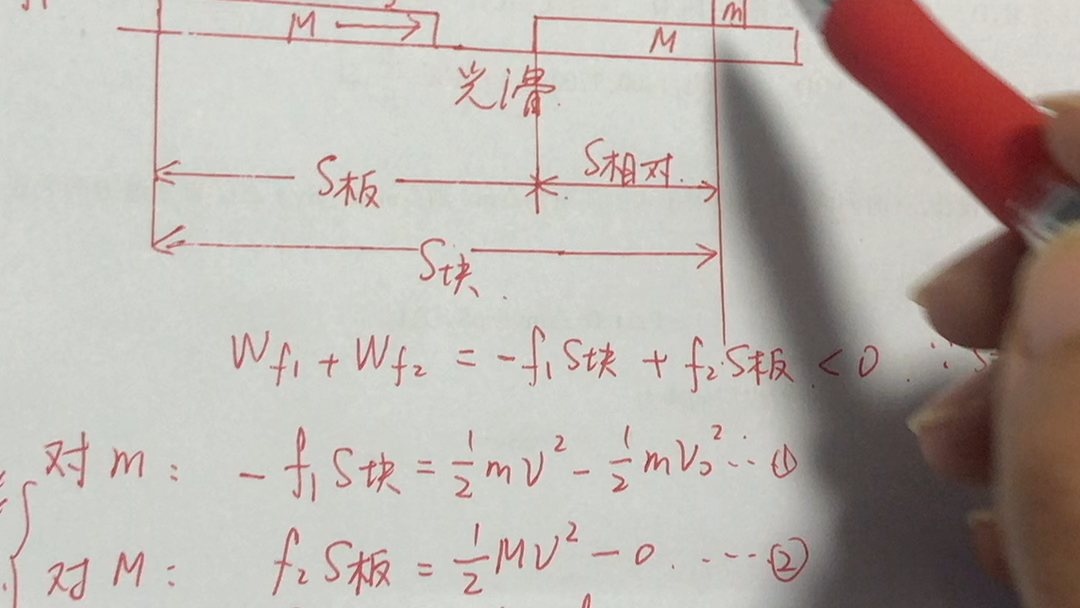 M M m
光滑
S板 S相对
S块
Wf₁ + Wf₂ = -f₁S块 + f₂S板 < 0 ∵
对m: -f₁S块 = ½mv² - ½mv₀² … ①
对M: f₂S板 = ½Mv² - 0 … ②